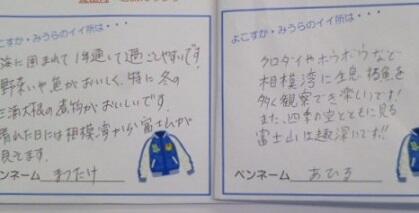 よこすか・みうらのイイ所は・・・
海に囲まれて1年通して過ごしやすいです。
野菜や魚がおいしく、特に冬の
三浦大根の煮物がおいしいです。
晴れた日には相模湾から富士山が
見えます。
ペンネーム まつたけ
よこすか・みうらのイイ所は・・・
クロダイやホウボウなど
相模湾に生息 魚を
多く観察でき楽しいです!
また、四季の空とともに見る
富士山は趣深いです!!
ペンネーム あひる